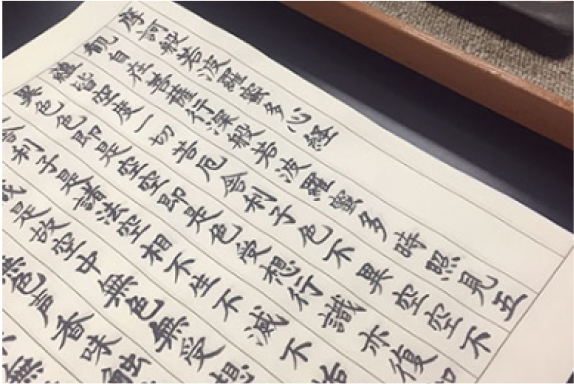 摩訶般若波羅蜜多心経
観自在菩薩行深般若波羅蜜多時照見五
蘊皆空度一切苦厄舎利子色不異空空不
異色色即是空空即是色受想行識亦復
舎利子是諸法空相不生不滅不垢
是故空中無色無受想
無色声香味触
無